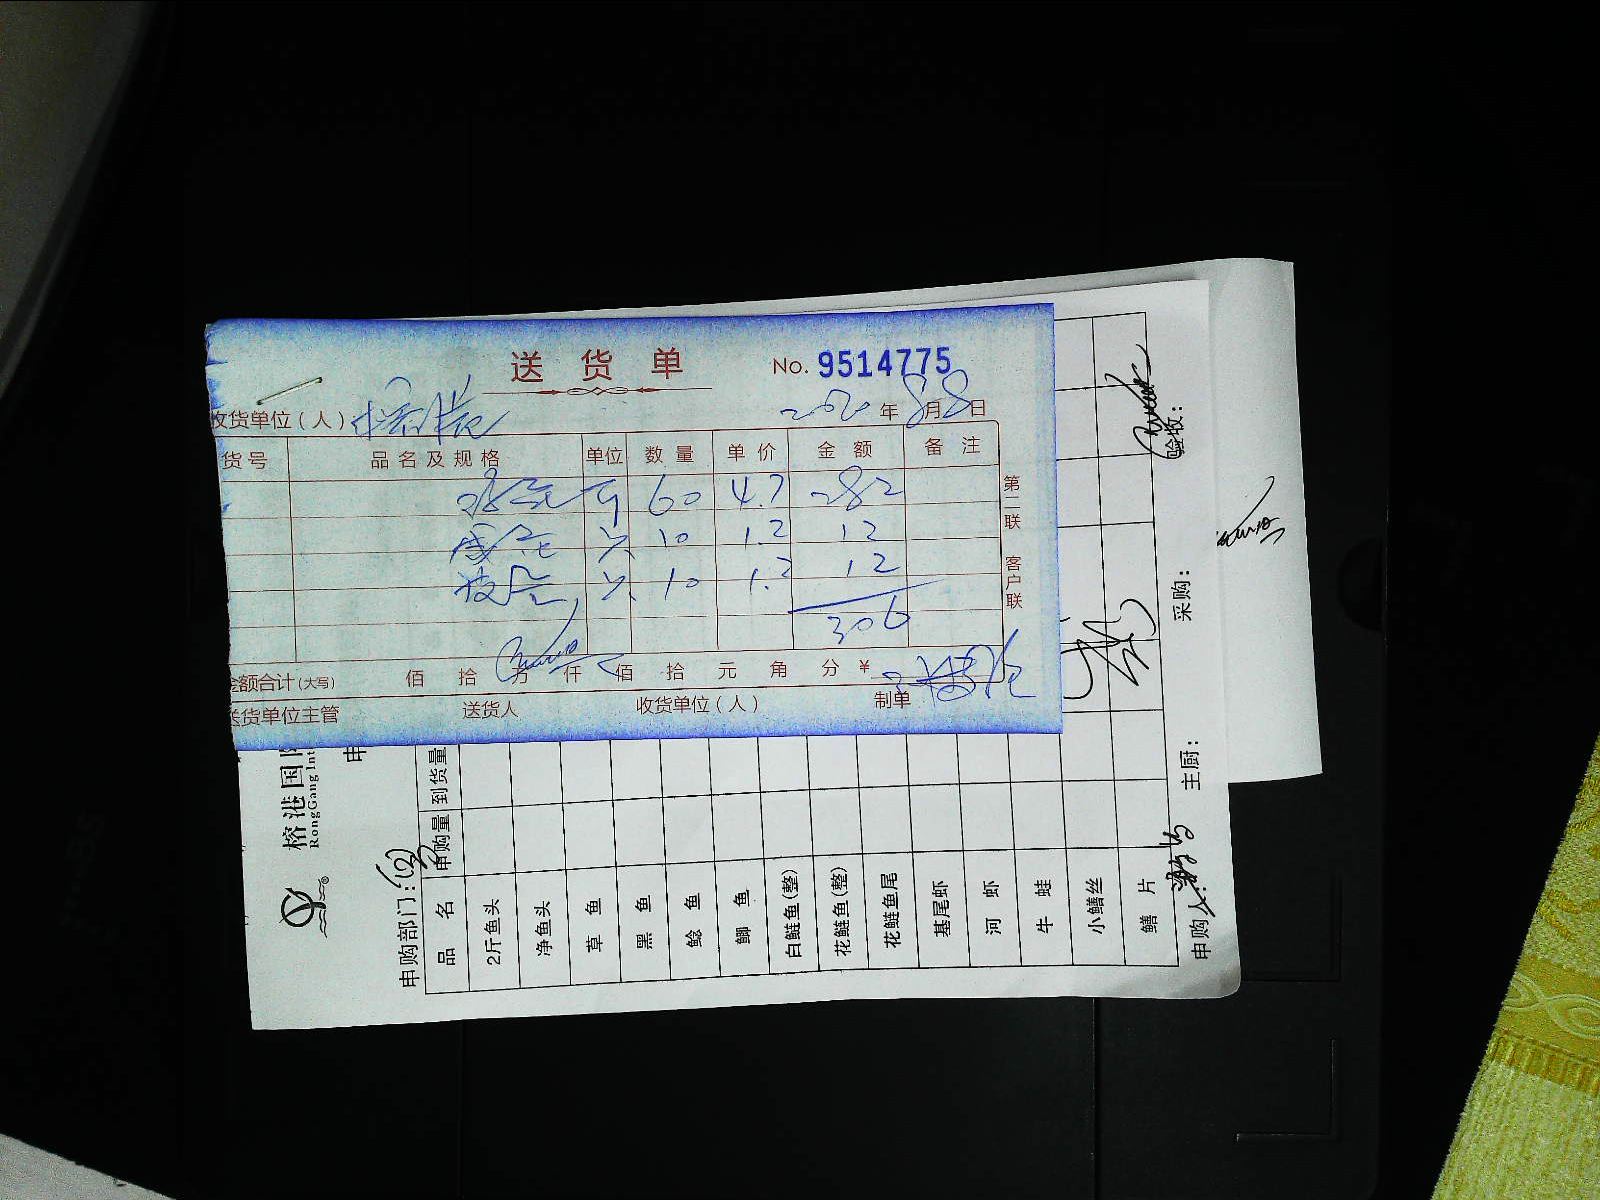 送货单 No. 9514775
收货单位(人) 2020年8月8日
货号 品名及规格 单位 数量 单价 金额 备注
斤 60 4.7 282
10 1.2 12
10 1.2 12
306
第二联 客户联
金额合计(大写) 佰 拾 万 仟 佰 拾 元 角 分 ¥
送货单位主管 送货人 收货单位(人) 制单
榕港国
RongGang Int
申
申购部门:
品名 申购量 到货量
2斤鱼头
净鱼头
草鱼
黑鱼
鲶鱼
鲫鱼
白鲢鱼(整)
花鲢鱼(整)
花鲢鱼尾
基尾虾
河虾
牛蛙
小鳝丝
鳝片
申购人: 主厨: 采购: 验收: